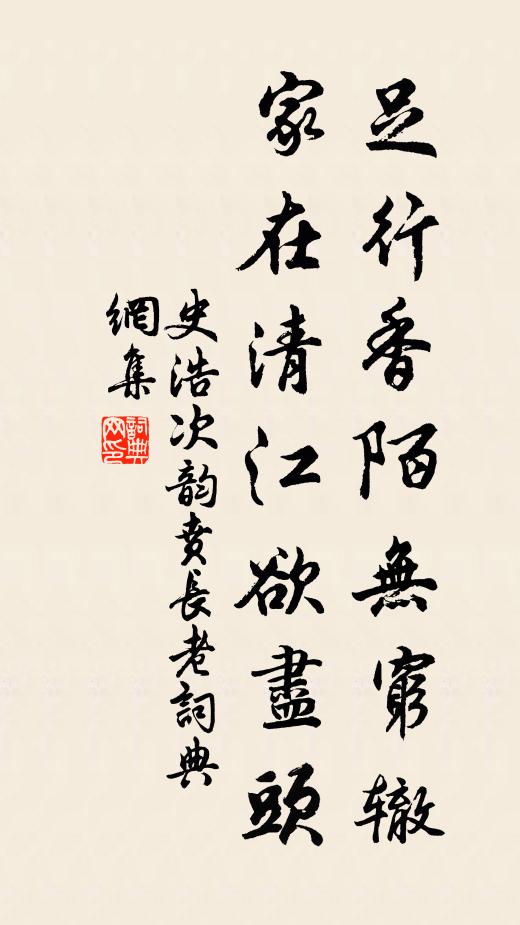 足行香陌無窮辙
家在清江欲盡頭
史浩次韵賁長老詞典
網集
詞典網印